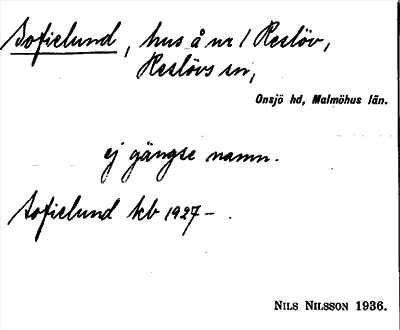 Sofielund, hus å nr 1 Reslöv,
Reslövs sn,
Onsjö hd, Malmöhus län.
ej gängse namn.
Sofielund kb 1927– .
NILS NILSSON 1936.